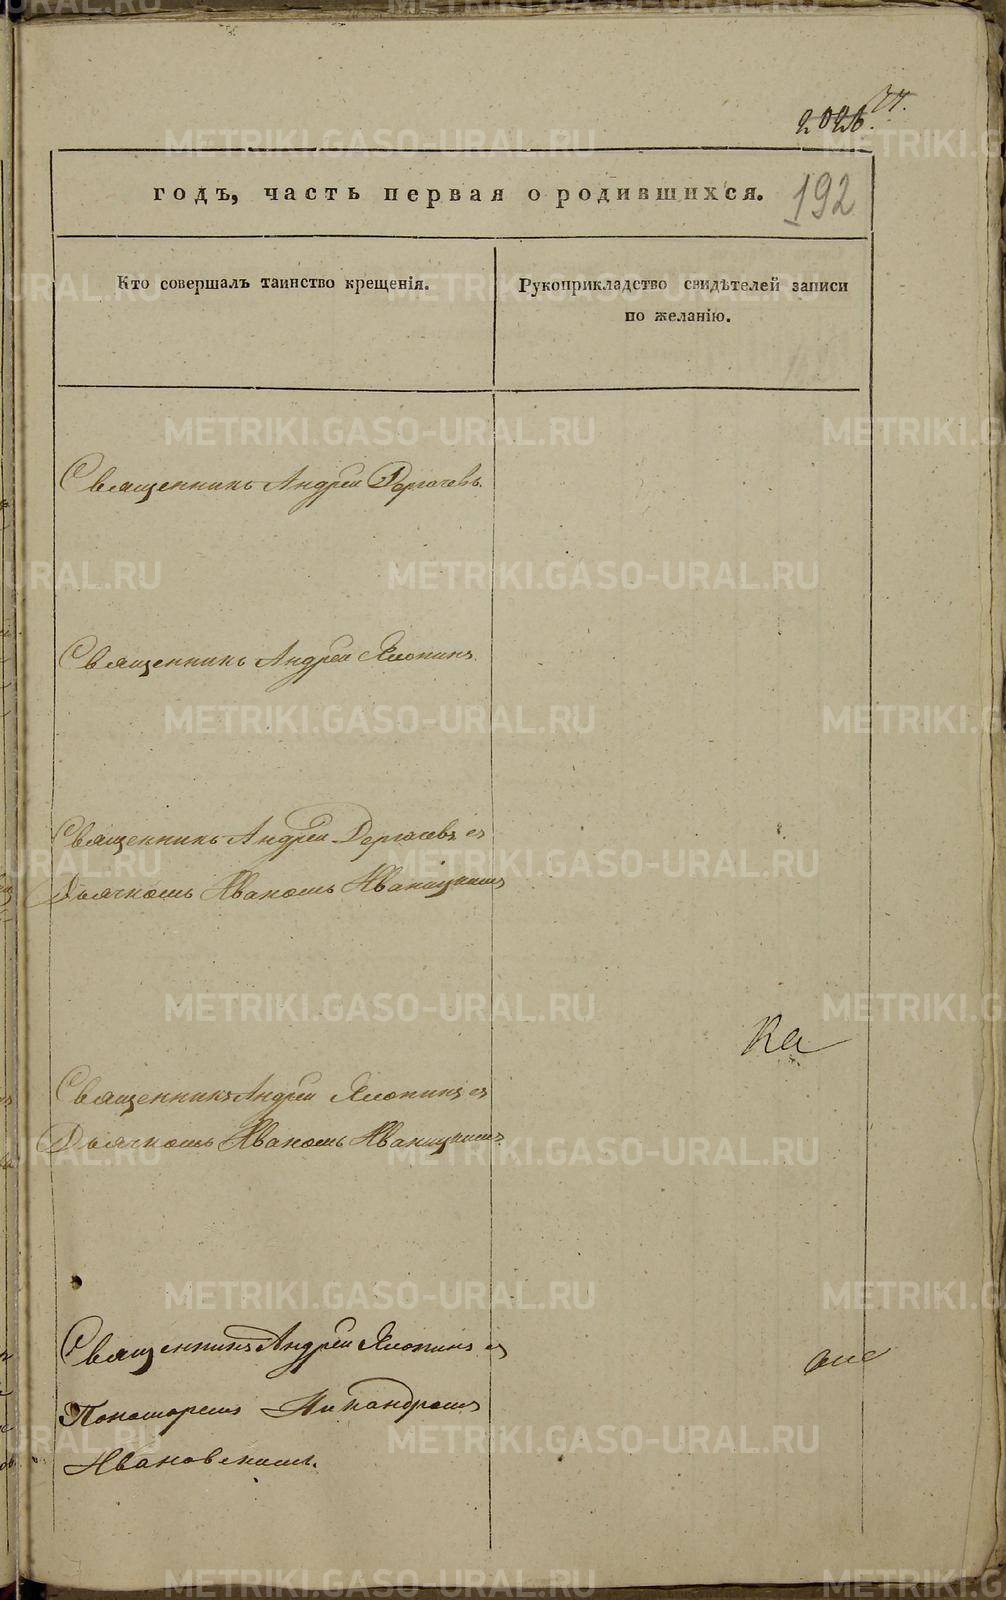 2026. 77.
192
годъ, часть первая о родившихся.
Кто совершалъ таинство крещенія.
Рукоприкладство свидѣтелей записи
по желанію.
Священникъ Андрей Дергачевъ.
Священникъ Андрей Хлопинъ
Священникъ Андрей Дергачевъ съ
Дьячкомъ Иваномъ Иваницкимъ
Священникъ Андрей Хлопинъ съ
Дьячкомъ Иваномъ Иваницкимъ
Священникъ Андрей Хлопинъ съ
Пономаремъ Никандромъ
Ивановскимъ.
METRIKI.GASO-URAL.RU